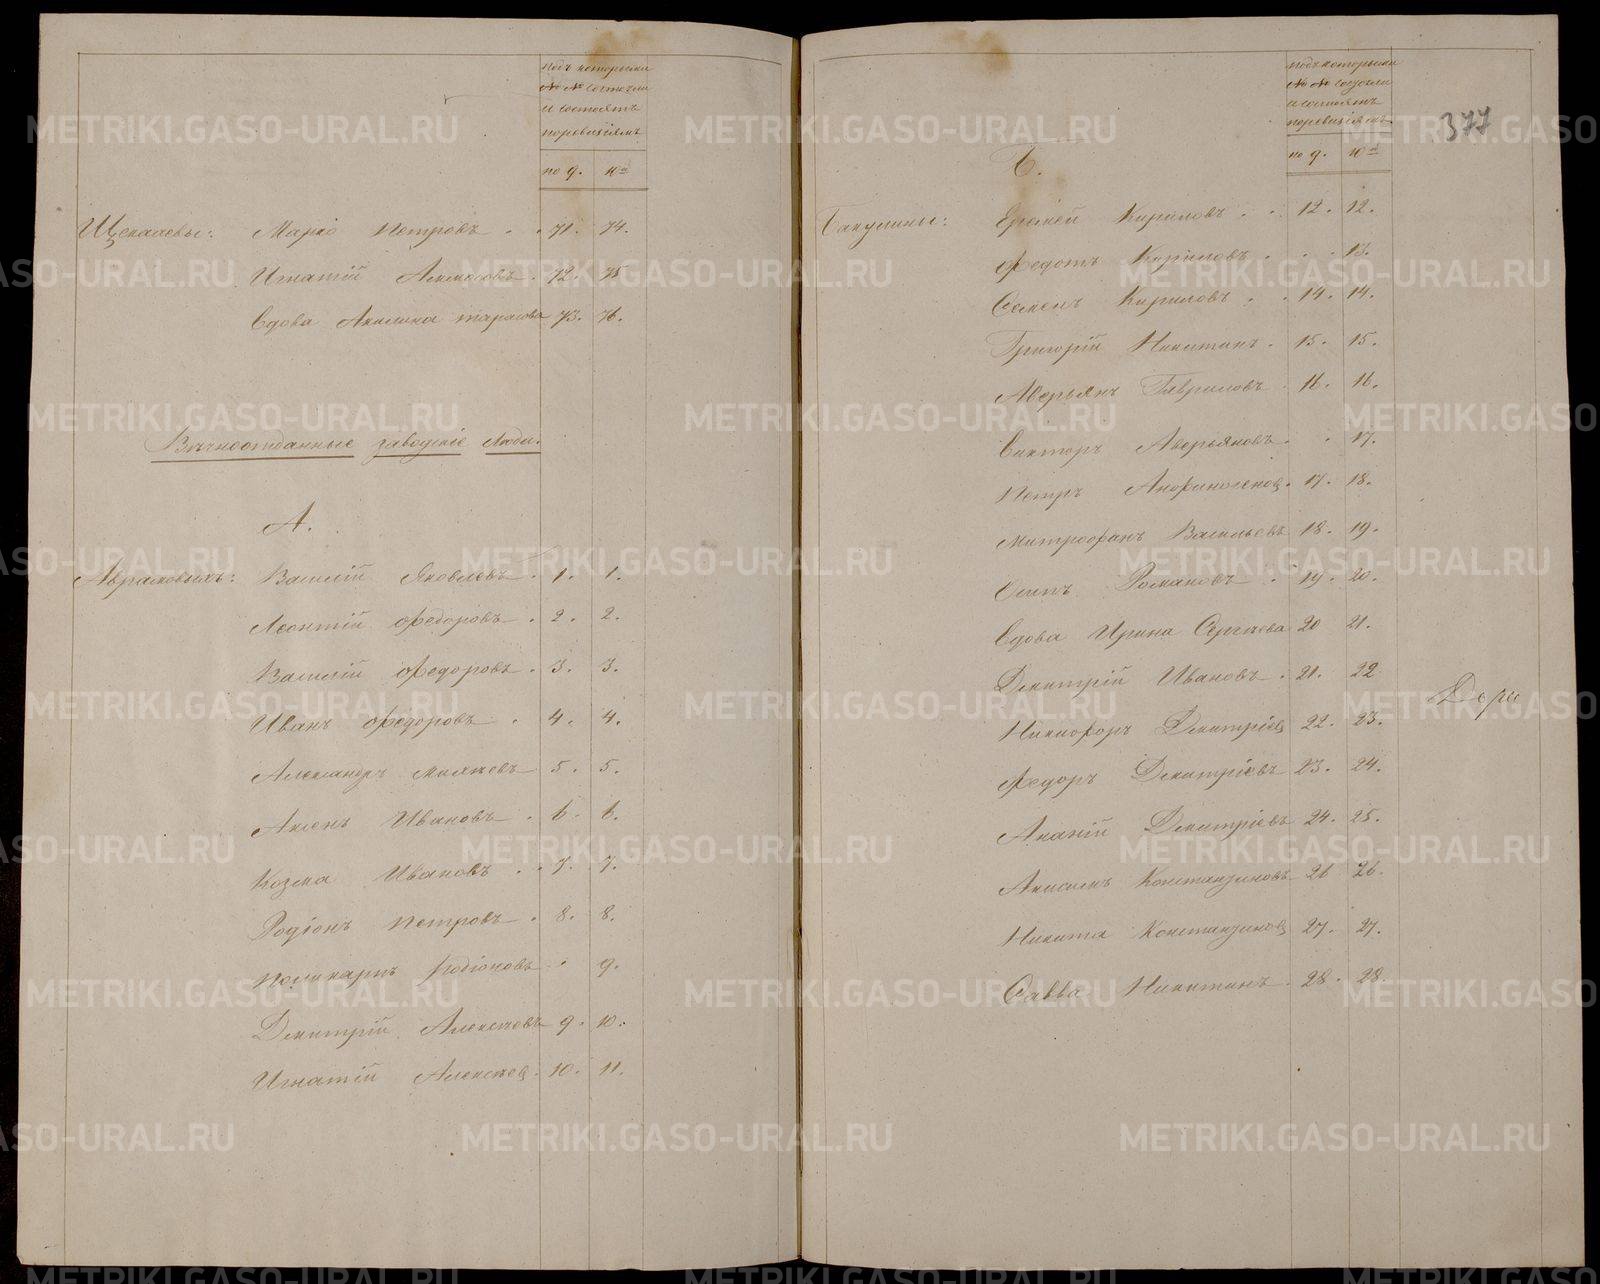 подъ которыми
№ № состояли
и состоятъ
по ревизіямъ
по 9. 10ой
Щекалевы: Марко Петровъ 71. 74.
Игнатій 72. 75
Вдова Акилина Тарасова 73. 76.
Вѣчноотданные заводскіе люди.
А.
Аврамовыхъ: Василій Яковлевъ 1. 1.
Леонтій Федоровъ 2. 2.
Василій Федоровъ 3. 3.
Иванъ Федоровъ 4. 4.
Александръ 5. 5.
Аксенъ Ивановъ 6. 6.
Козма Ивановъ 7. 7.
Родіонъ Петровъ 8. 8.
Поликарпъ Родіоновъ 9.
Дмитрій Алексѣевъ 9. 10.
Игнатій Алексѣев 10. 11.
подъ которыми
№ № состояли
и состоятъ
по ревизіямъ
377
по 9. 10ой
Б.
Бакулины: Еремей Кириловъ 12. 12.
Федотъ Кириловъ 13.
Семенъ Кириловъ 14. 14.
Григорій Никитинъ 15. 15.
Аверьянъ Гавриловъ 16. 16.
Викторъ Аверьяновъ 17.
Петръ Анфиногенов 17. 18.
Митрофанъ Васильевъ 18. 19.
Осипъ Романовъ 19. 20.
Вдова Ирина Сергѣева 20 21.
Дмитрій Ивановъ 21. 22
Никифоръ Дмитріев 22. 23.
Федоръ Дмитріевъ 23. 24.
Ананій Дмитріевъ 24. 25.
Анисимъ Константиновъ 26 26.
Никита Константинов 27. 27.
Савва Никитинъ 28. 28.